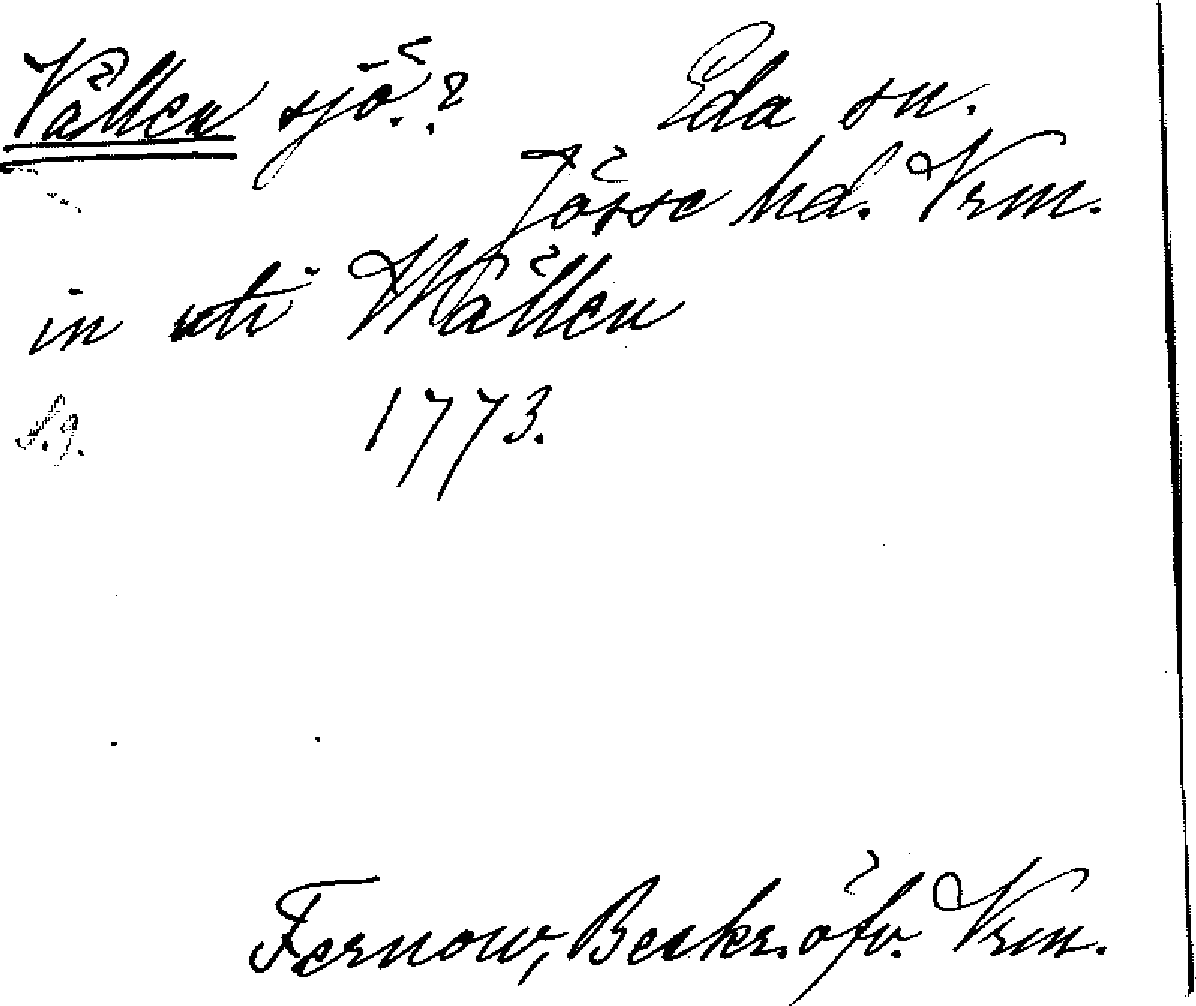 Vållen sjö.? Eda sn.
Jösse hd. Vrm.
in uti Wållen
S.9. 1773.
Fernow, Beskr. öfv. Vrm.